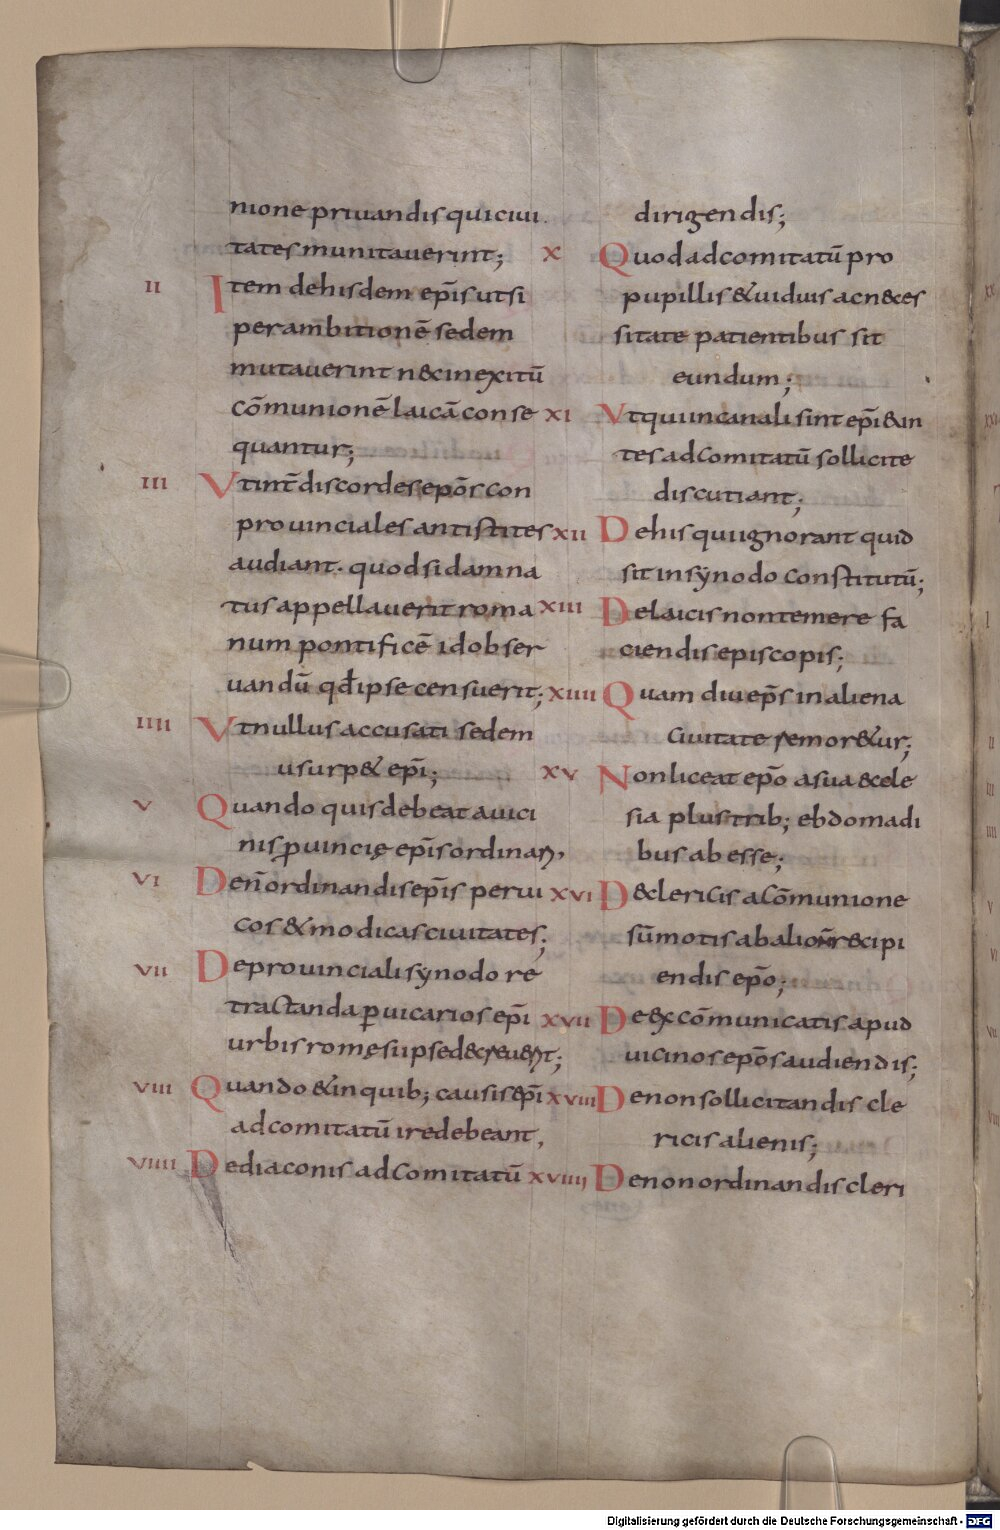 nione priuandis qui ciui
tates munitauerint;
II Item de hisdem ep̄is ut si
per ambitionē sedem
mutauerint nec in exitū
cōmunionē laicā conse
quantur;
III Vt int̄ discordes epōs con
prouinciales antistites
audiant. quod si damna
tus appellauerit roma
num pontificē id obser
uandū qđ ipse censuerit;
IIII Vt nullus accusati sedem
usurp& ep̄i;
V Quando quis debeat a uici
nis ꝓuincię ep̄is ordinari,
VI De ñ ordinandis ep̄is per ui
cos & modicas ciuitates;
VII De prouinciali synodo re
tractanda ꝑ uicarios ep̄i
urbis romę si ipse decreuerit;
VIII Quando & in quib; causis ep̄i
ad comitatū ire debeant,
VIIII De diaconis ad comitatū
dirigendis;
X Quod ad comitatū pro
pupillis & uiduis ac n&ces
sitate patientibus sit
eundum;
XI Vt qui in canali sint ep̄i &in
tes ad comitatū sollicite
discutiant;
XII De his qui ignorant quid
sit in synodo constitutū;
XIII De laicis non temere fa
ciendis episcopis;
XIIII Quam diu ep̄s in aliena
ciuitate remor&ur;
XV Non liceat epō a sua &cle
sia plus trib; ebdomadi
bus abesse;
XVI D& clericis a cōmunione
sūmotis ab alio n̄ recipi
endis epō;
XVII De excōmunicatis apud
uicinos epōs audiendis;
XVIII De non sollicitandis cle
ricis alienis;
XVIIII De non ordinandis cleri
Digitalisierung gefördert durch die Deutsche Forschungsgemeinschaft - DFG